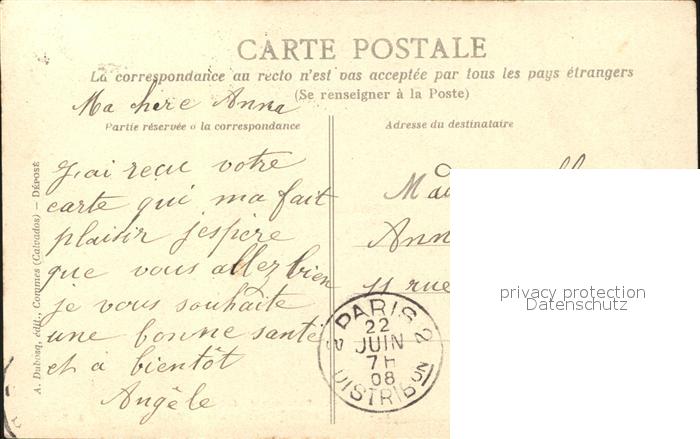 CARTE POSTALE
La correspondance au recto n'est pas acceptée par tous les pays étrangers
(Se renseigner à la Poste)
Ma chere Anna
Partie réservée à la correspondance
J'ai reçu votre
carte qui ma fait
plaisir jespere
que vous allez bien
je vous souhaite
une bonne santé
et a bientôt
Angèle
A. Dubosq, édit., Commes (Calvados) — DÉPOSÉ
Adresse du destinataire
Ann
11 rue
PARIS 2
22
JUIN
7H
08
DISTRIBON
privacy protection
Datenschutz